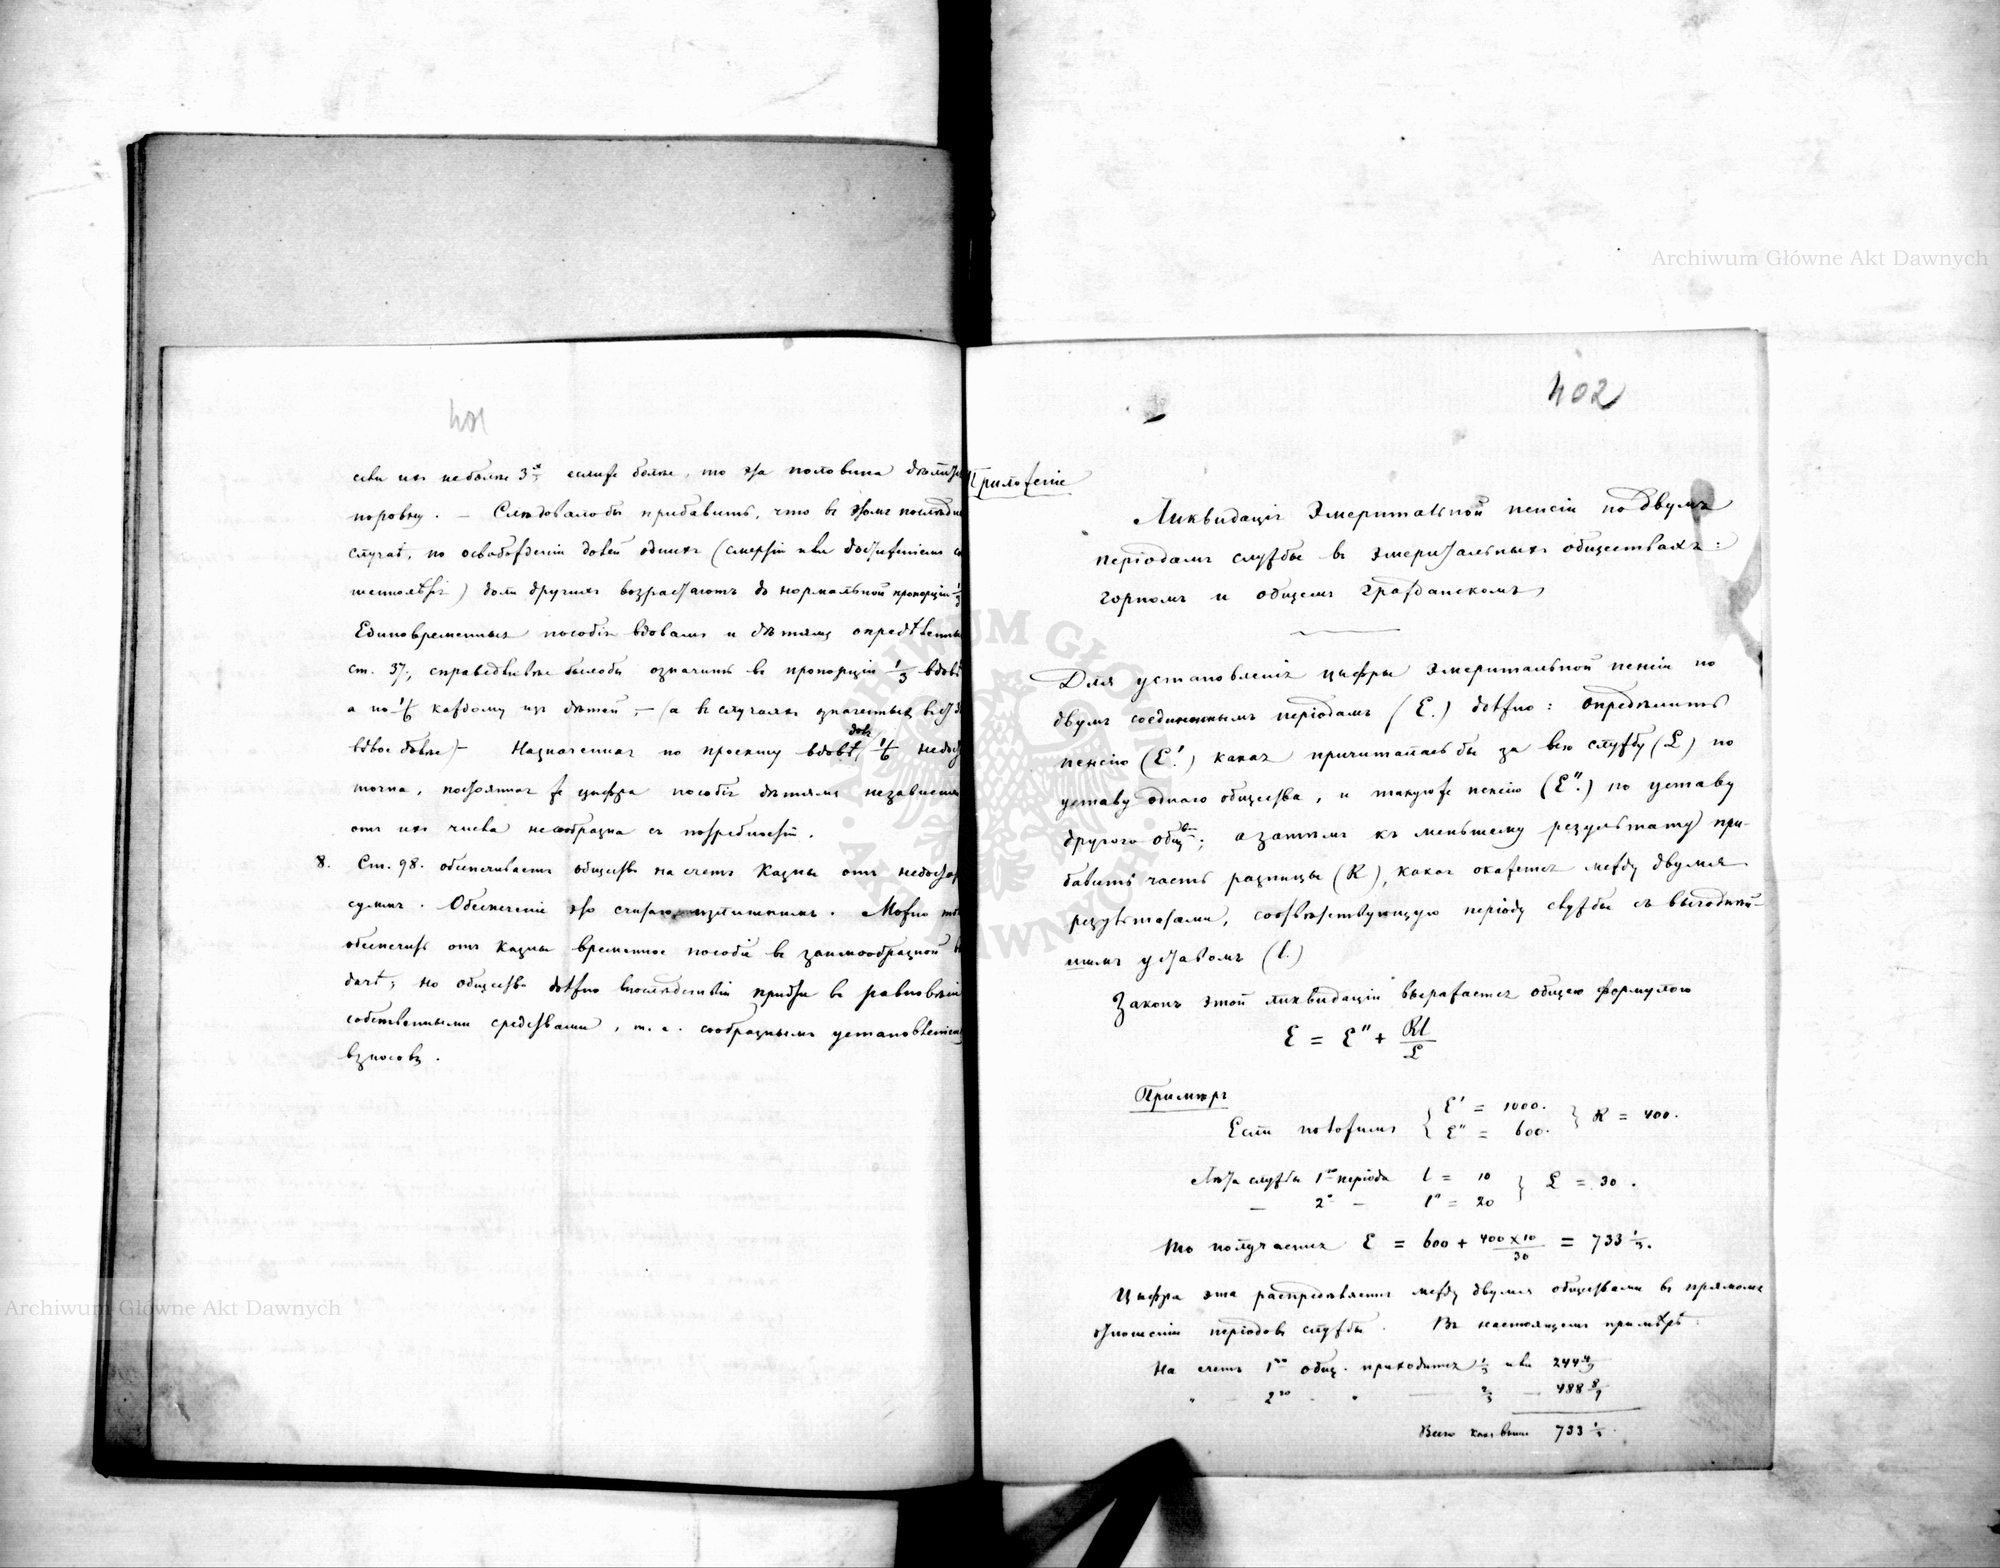 401
если ихъ неболѣе 3х еслиже болѣе, то эта половина дѣлится
поровну. — Слѣдовалобы прибавить, что въ этомъ послѣдн
случаѣ, по освобожденіи долей однихъ (смертію или достиженіемъ со
) доли другихъ возрастаютъ до нормальной пропорціи 1/3
Единовременныя пособія вдовамъ и дѣтямъ опредѣленныя
ст. 37, справедливѣе былобы означить въ пропорціи 1/3 вдовѣ
а по 1/6 каждому изъ дѣтей, — (а въ случаяхъ
вдвое болѣе) — Назначенная по проекту вдовѣ доля 1/6 недоста
точна, постоянная же цифра пособія дѣтямъ независимо
отъ ихъ числа несообразна съ потребностію.
8. Ст. 98. обезпечиваетъ общество на счетъ Казны отъ недоста
суммъ. Обезпеченіе это считаю излишнимъ. Можно
обезпечить отъ Казны временное пособіе въ заимообразной вы
дачѣ; но общество должно впослѣдствіи прійти въ равновѣсіе
собственными средствами, т. е. сообразнымъ установленіемъ
взносовъ.
402
Приложеніе
Ликвидація Эмеритальной пенсіи по двумъ
періодамъ службы въ эмеритальныхъ обществахъ:
горномъ и общемъ гражданскомъ,
Для установленія цифры эмеритальной пенсіи по
двумъ соединеннымъ періодамъ (E.) должно: опредѣлить
пенсію (E'.) какая причиталась бы за всю службу (L) по
уставу одного общества, и такуюже пенсію (E".) по уставу
другого общтва; а затѣмъ къ меньшему результату при-
бавить часть разницы (R), какая окажется между двумя
результатами, соотвѣтствующую періоду службы съ выгоднѣй-
шимъ уставомъ (l.)
Законъ этой ликвидаціи выражается общею формулою
E = E" + Rl/L
Примѣръ
Если положимъ { E' = 1000. E" = 600. } R = 400.
Лѣта службы 1го періода l = 10 } L = 30.
— 2о — l" = 20
То получается E = 600 + 400 x 10/30 = 733 1/3.
Цифра эта распредѣляется между двумя обществами въ прямомъ
отношеніи періодовъ службы. Въ настоящемъ примѣрѣ:
На счетъ 1го общ. приходится 1/3 или 244 4/9
" — 2го - " — 2/3 — 488 8/9
Всего какъ выше 733 1/3.
Archiwum Główne Akt Dawnych
Archiwum Główne Akt Dawnych
ARCHIWUM GŁÓWNE · AKT DAWNYCH ·